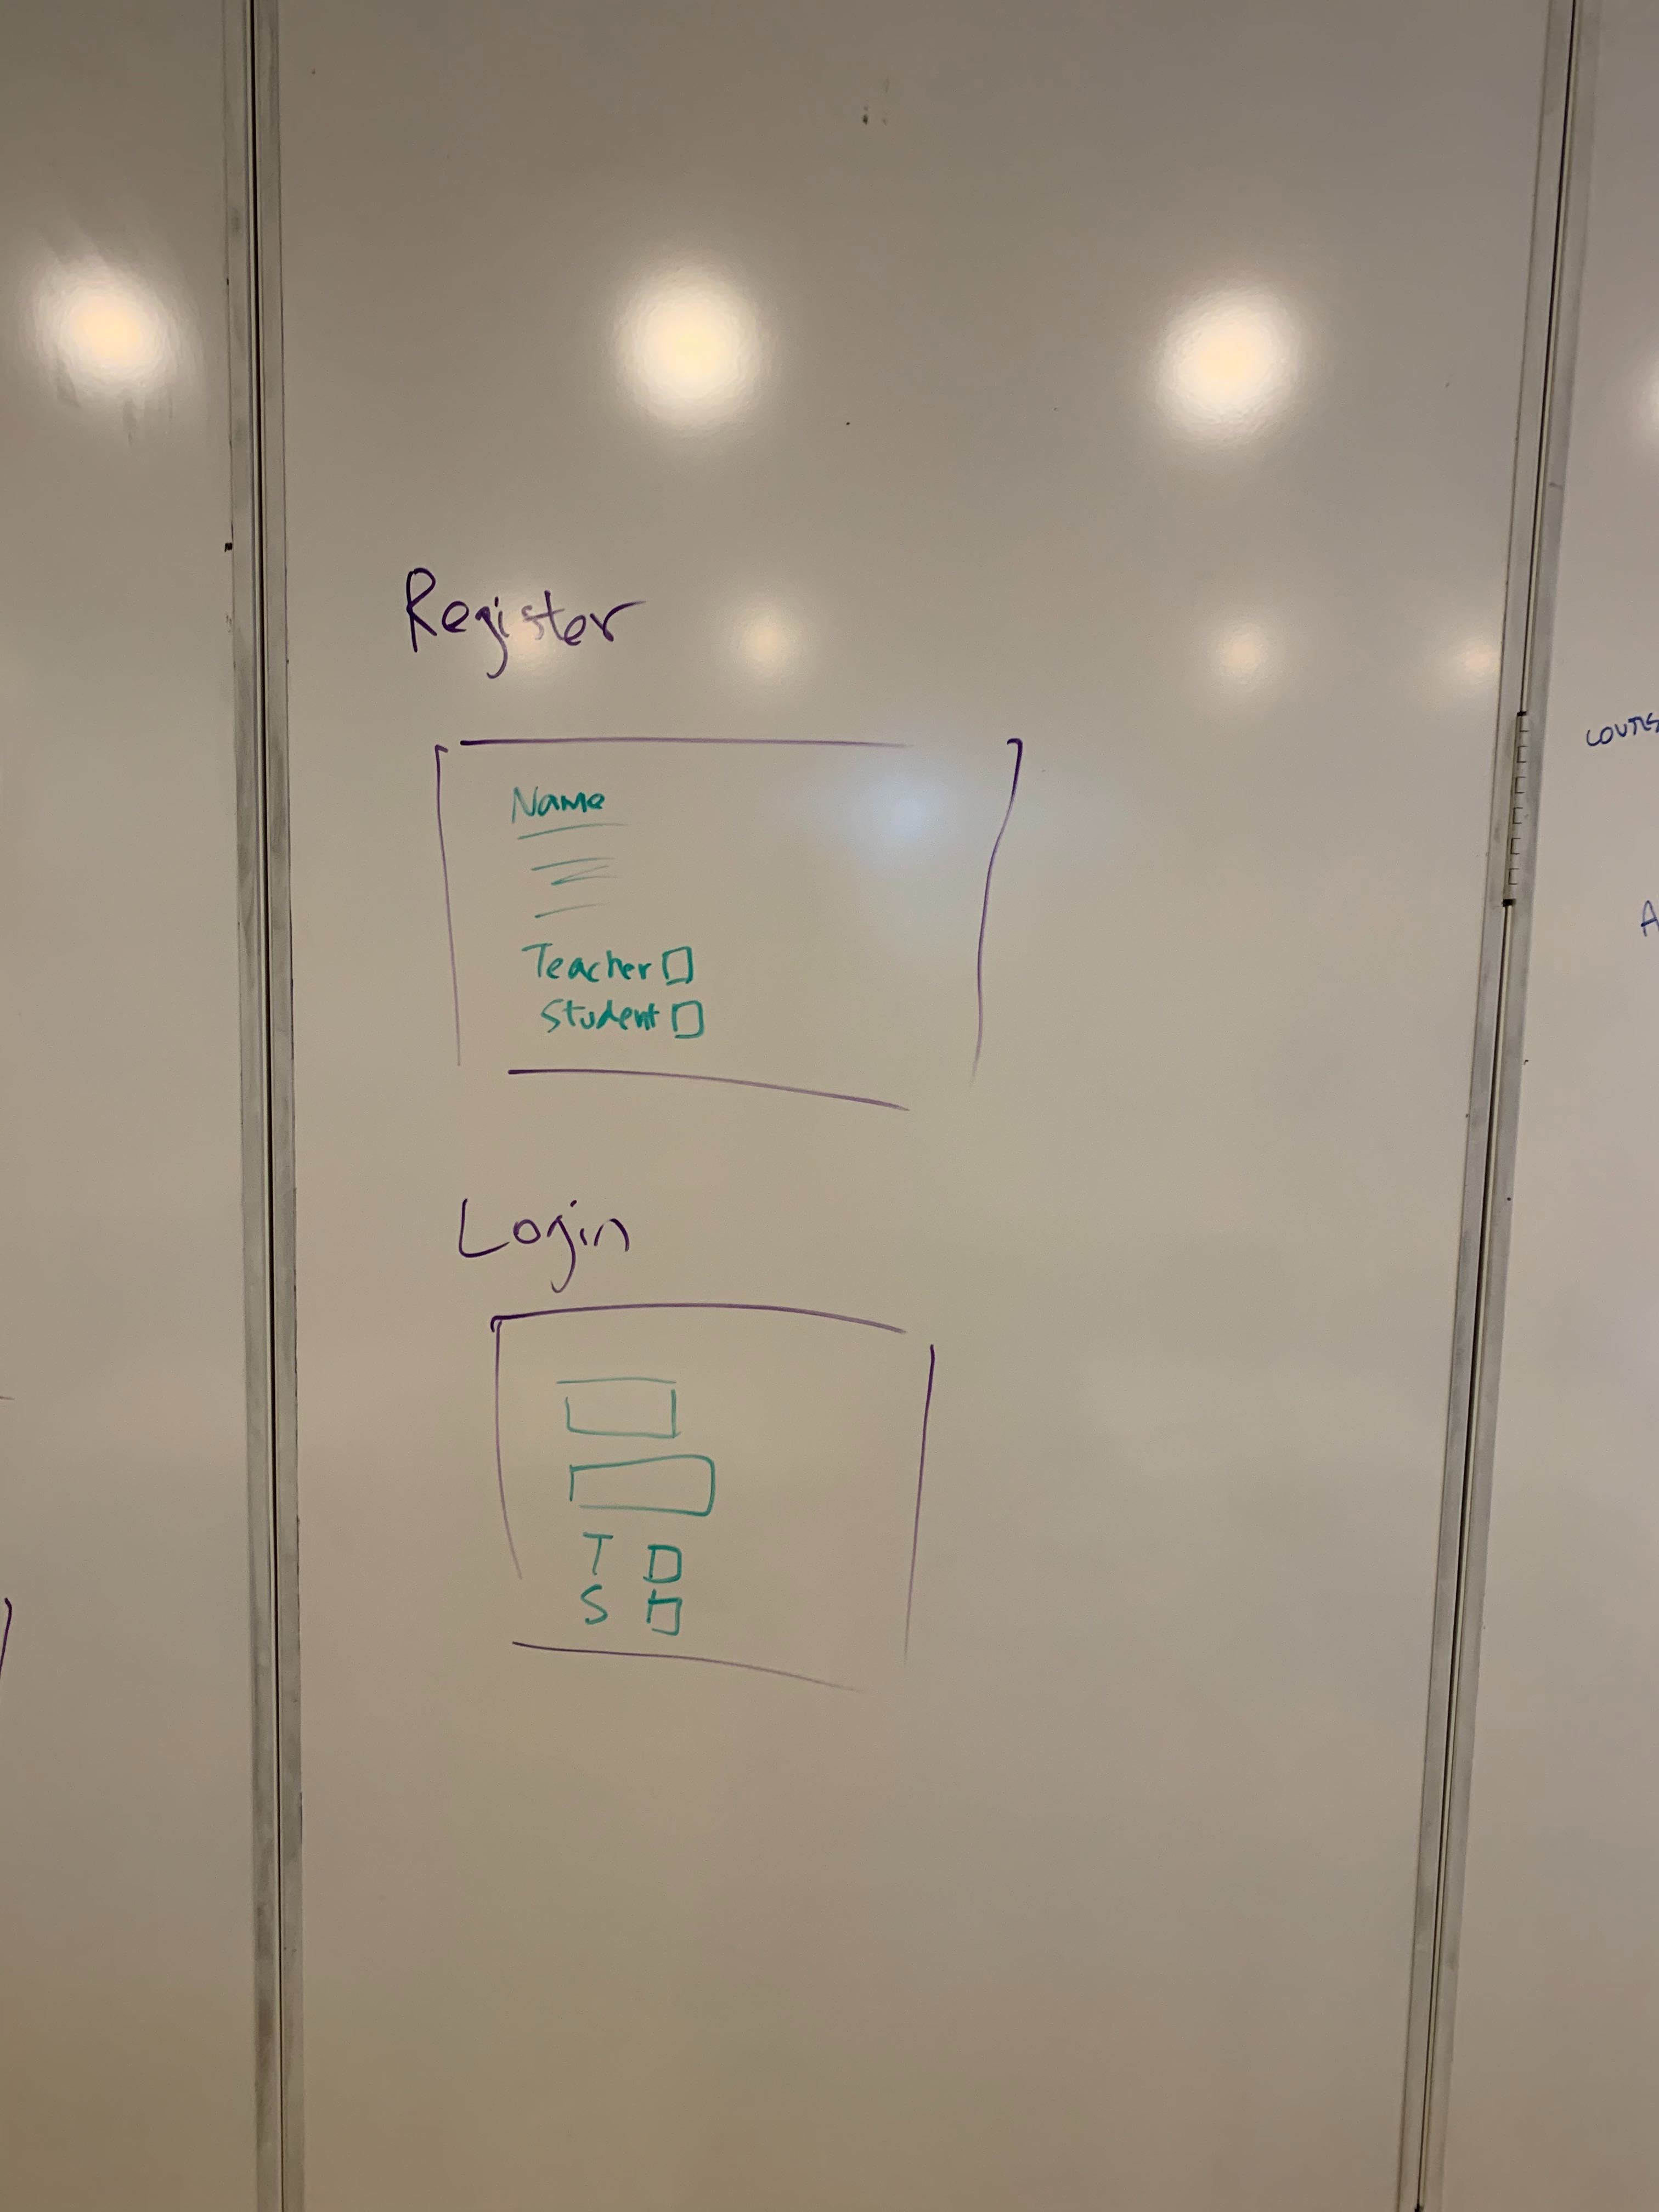 Register
Name
Teacher
Student
Login
T
S